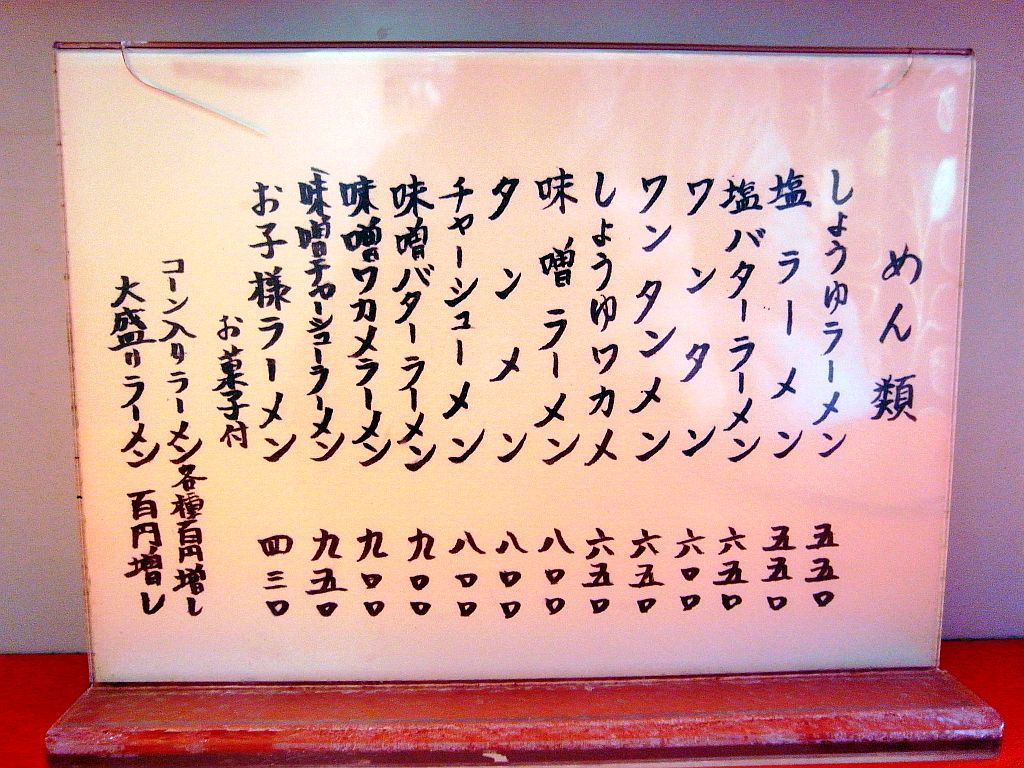 めん類
しょうゆラーメン 五五〇
塩ラーメン 五五〇
塩バターラーメン 六五〇
ワンタン 六〇〇
ワンタンメン 六五〇
しょうゆワカメ 六五〇
味噌ラーメン 八〇〇
タンメン 八〇〇
チャーシューメン 八〇〇
味噌バターラーメン 九〇〇
味噌ワカメラーメン 九〇〇
味噌チャーシューラーメン 九五〇
お子様ラーメン 四三〇
お菓子付
コーン入りラーメン各種百円増し
大盛りラーメン 百円増し